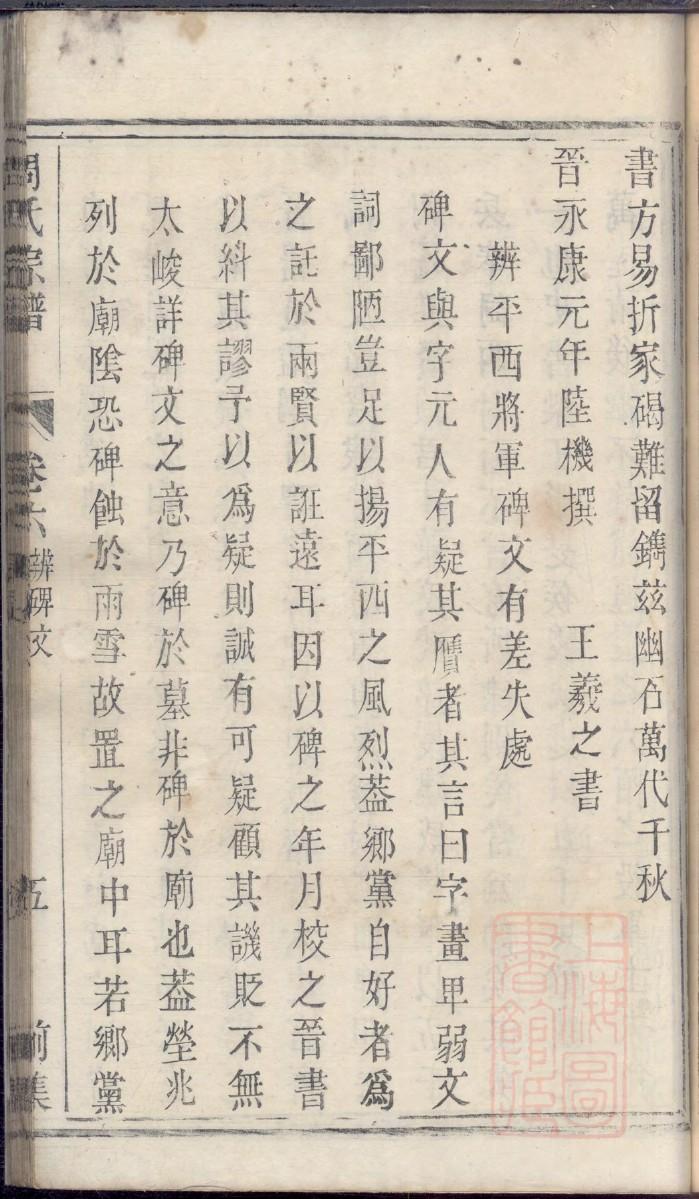 書方易折家碣難留鐫茲幽石萬代千秋
晉永康元年陸機撰　王羲之書
辨平西將軍碑文有差失處
碑文與字元人有疑其贋者其言曰字畫卑弱文
詞鄙陋豈足以揚平西之風烈葢鄉黨自好者爲
之託於兩賢以誑遠耳因以碑之年月校之晉書
以糾其謬予以爲疑則誠有可疑顧其譏貶不無
太峻詳碑文之意乃碑於墓非碑於廟也葢塋兆
列於廟陰恐碑蝕於雨雪故置之廟中耳若鄉黨
周氏宗譜　卷六　辨碑文　五　前集
上海圖
書館藏